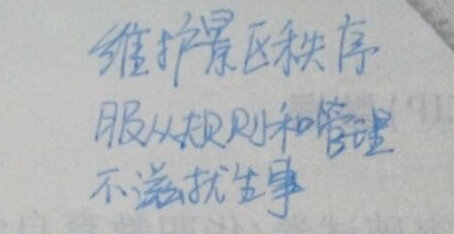 维护景区秩序
服从规则和管理
不滋扰生事